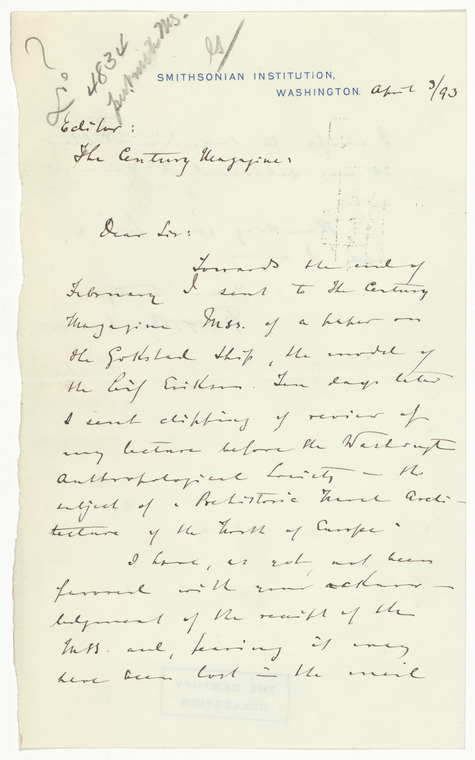 4834
SMITHSONIAN INSTITUTION,
WASHINGTON. April 3/93
Editor:
The Century Magazine:
Dear Sir:
Towards the end of
February I sent to The Century
Magazine Mss. of a paper on
the Gokstad Ship, the model of
the Leif Erikson. Ten days later
I sent clipping of review of
my lecture before the Washington
Anthropological Society — the
subject of "Prehistoric Naval Archi-
tecture of the North of Europe"
I have, as yet, not been
favored with your acknow-
ledgment of the receipt of the
Mss. and, fearing it may
have been lost in the mail
THE CENTURY
COLLECTION